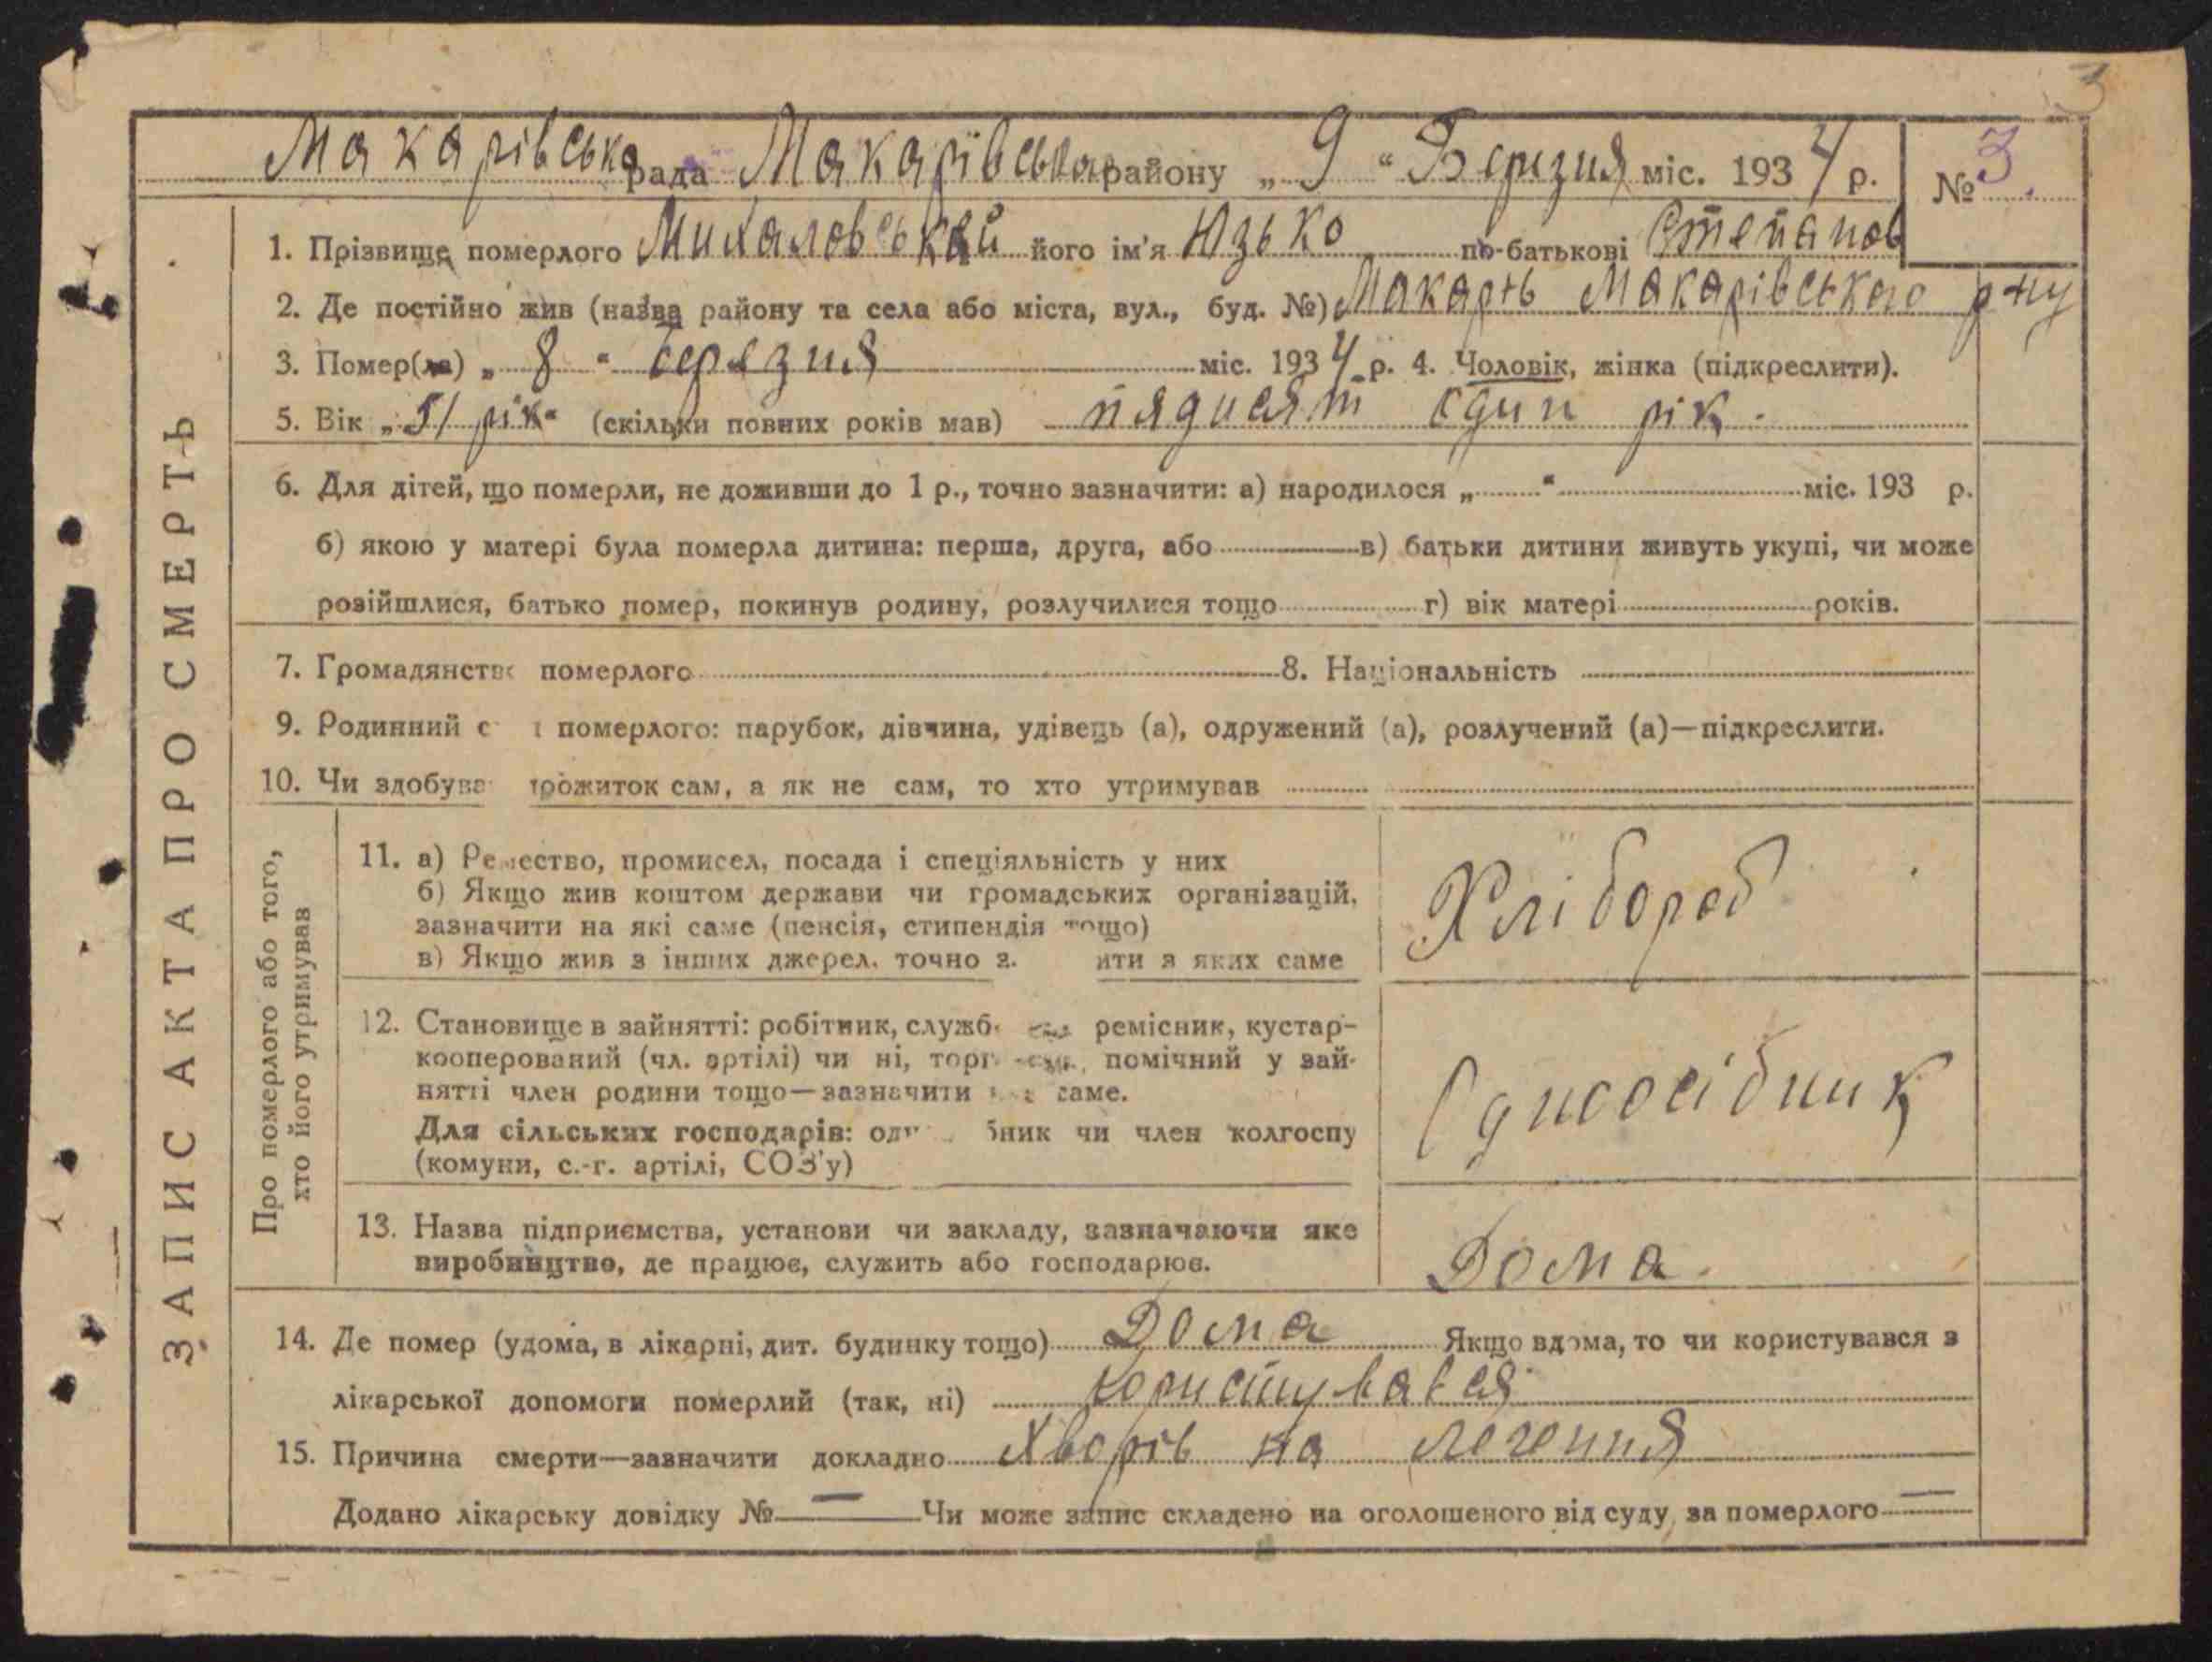 3
Макарівська рада Макарівська району „ 9 “ Березня міс. 1934 р. № 3.
1. Прізвище померлого Михаловський його ім'я Юзько по-батькові Степанов
2. Де постійно жив (назва району та села або міста, вул., буд. №) Макарів Макарівського р-ну
3. Помер(ла) „ 8 “ березня міс. 1934 р. 4. Чоловік, жінка (підкреслити).
5. Вік „ 51 рік “ (скільки повних років мав) пядисят один рік.
6. Для дітей, що померли, не доживши до 1 р., точно зазначити: а) народилося „ “ міс. 193 р.
б) якою у матері була померла дитина: перша, друга, або в) батьки дитини живуть укупі, чи може
розійшлися, батько помер, покинув родину, розлучилися тощо г) вік матері років.
7. Громадянство померлого 8. Національність
9. Родинний с і померлого: парубок, дівчина, удівець (а), одружений (а), розлучений (а)—підкреслити.
10. Чи здобува прожиток сам, а як не сам, то хто утримував
ЗАПИС АКТА ПРО СМЕРТЬ
Про померлого або того,
хто його утримував
11. а) Ремество, промисел, посада і спеціяльність у них
б) Якщо жив коштом держави чи громадських організацій,
зазначити на які саме (пенсія, стипендія тощо)
в) Якщо жив з інших джерел, точно з ити з яких саме
Хлібороб
12. Становище в зайнятті: робітник, служб ремісник, кустар-
кооперований (чл. артілі) чи ні, торг помічний у зай-
нятті член родини тощо—зазначити саме.
Для сільських господарів: од бник чи член колгоспу
(комуни, с.-г. артілі, СОЗ'у)
Односібник
13. Назва підприємства, установи чи закладу, зазначаючи яке
виробництво, де працює, служить або господарює.
Дома.
14. Де помер (удома, в лікарні, дит. будинку тощо) Дома Якщо вдома, то чи користувався з
лікарської допомоги померлий (так, ні) користувався
15. Причина смерти—зазначити докладно Хворів на легення
Додано лікарську довідку № — Чи може запис складено на оголошеного від суду за померлого —